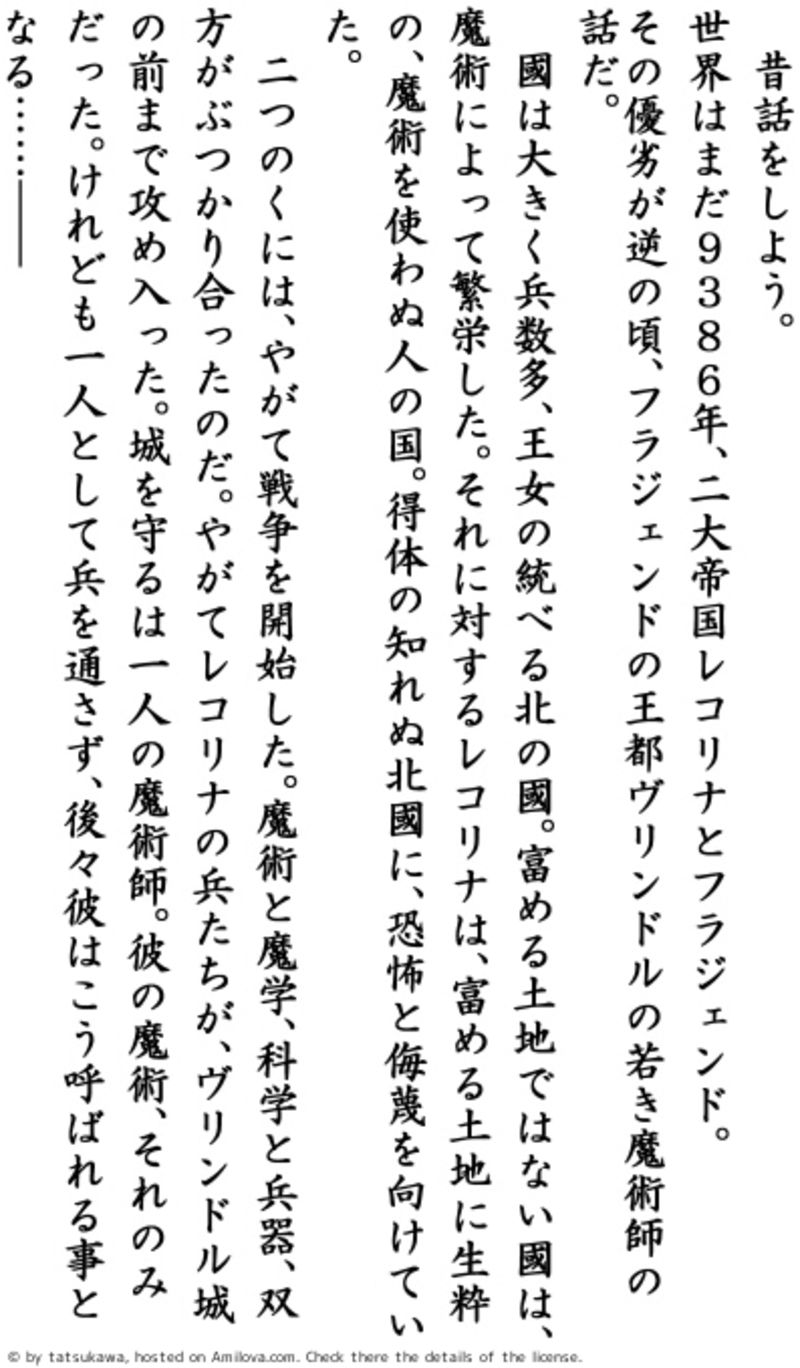 昔話をしよう。
世界はまだ９３８６年、二大帝国レコリナとフラジェンド。
その優劣が逆の頃、フラジェンドの王都ヴリンドルの若き魔術師の
話だ。
國は大きく兵数多、王女の統べる北の國。富める土地ではない國は、
魔術によって繁栄した。それに対するレコリナは、富める土地に生粋
の、魔術を使わぬ人の国。得体の知れぬ北國に、恐怖と侮蔑を向けてい
た。
二つのくには、やがて戦争を開始した。魔術と魔学、科学と兵器、双
方がぶつかり合ったのだ。やがてレコリナの兵たちが、ヴリンドル城
の前まで攻め入った。城を守るは一人の魔術師。彼の魔術、それのみ
だった。けれども一人として兵を通さず、後々彼はこう呼ばれる事と
なる……――
© by tatsukawa, hosted on Amilova.com. Check there the details of the license.